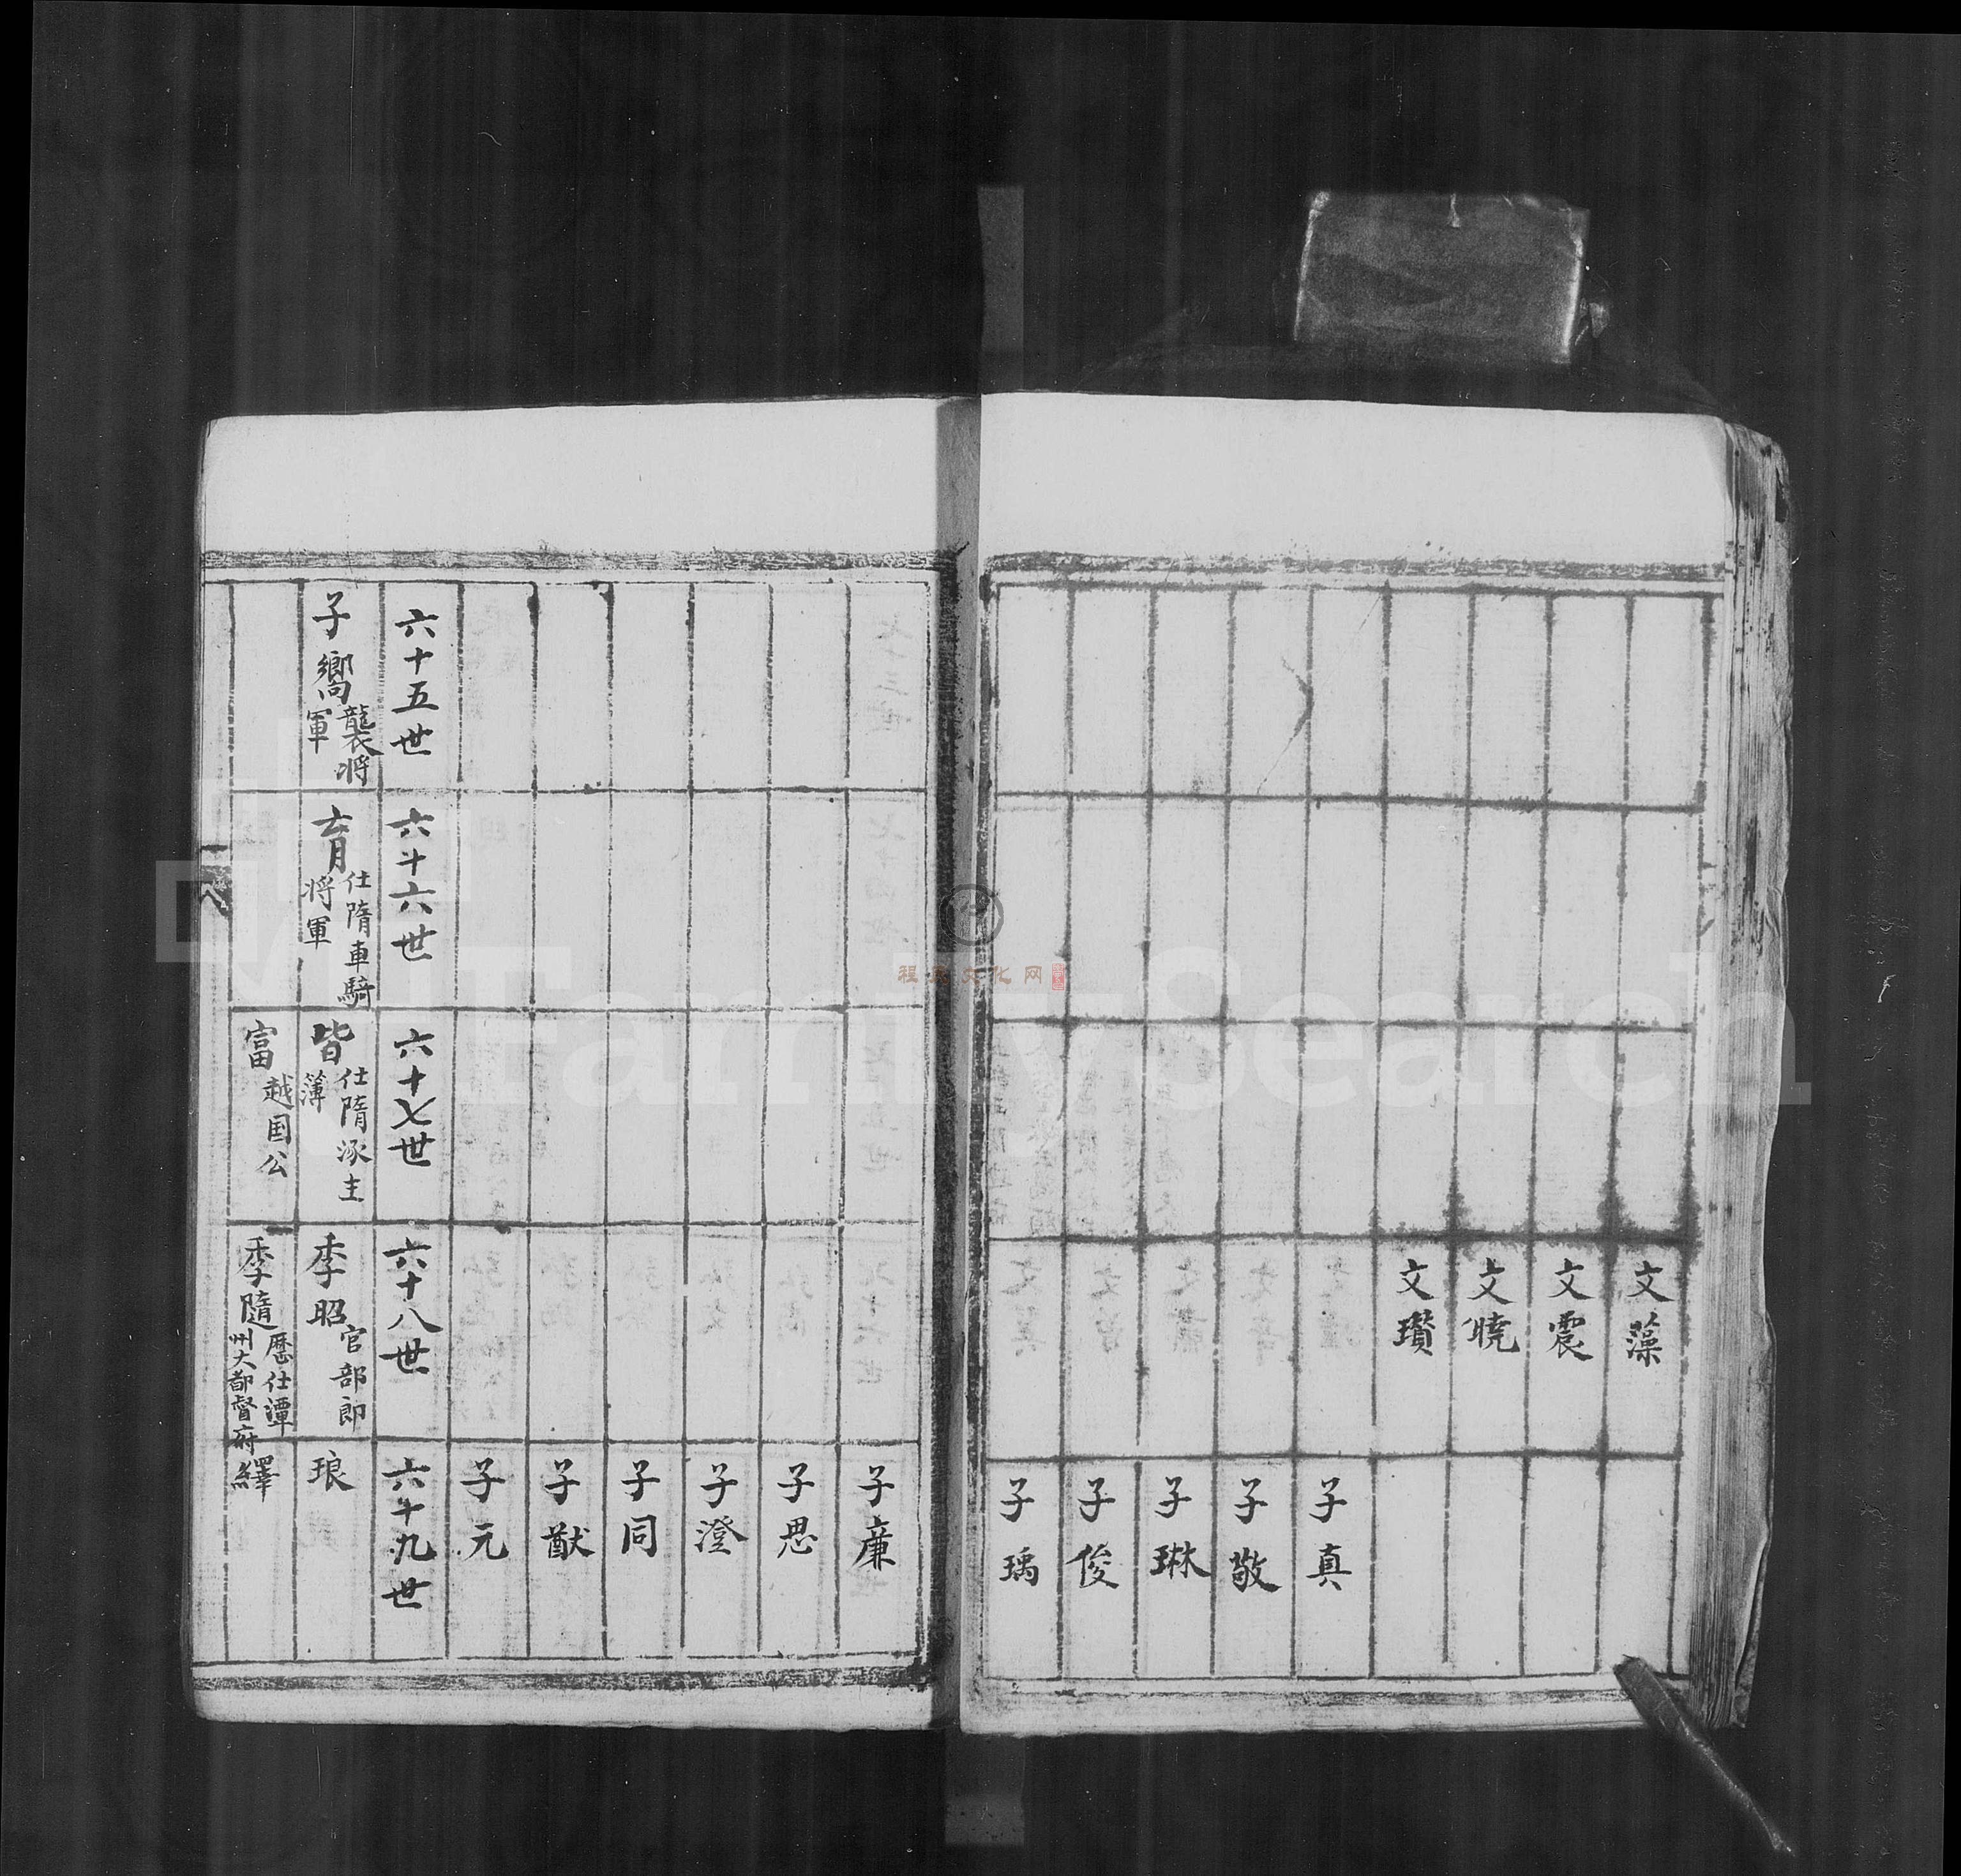 文藻
文震
文曉
文瓚
子真
子敬
子琳
子俊
子瑀
子廉
子思
子澄
子同
子猷
子元
六十五世
六十六世
六十七世
六十八世
六十九世
子嚮 襲将軍
育 仕隋車騎将軍
皆 仕隋涿主簿
季昭 官部郎
琅
富 越国公
季隨 歷仕潭州大都督府
繹
程氏文化网
FamilySearch